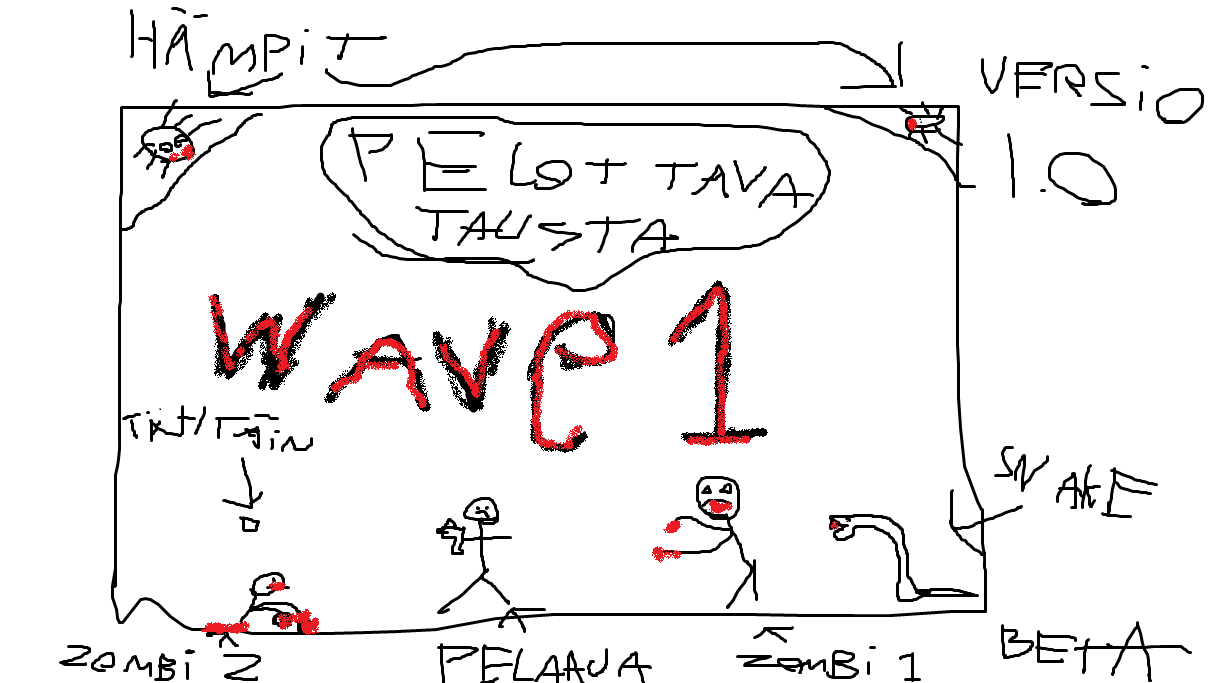 HÄMPIT
VERSIO
1.0
PELOTTAVA
TAUSTA
WAVE 1
SNAKE
ZOMBI 2
PELAAJA
ZOMBI 1
BETA